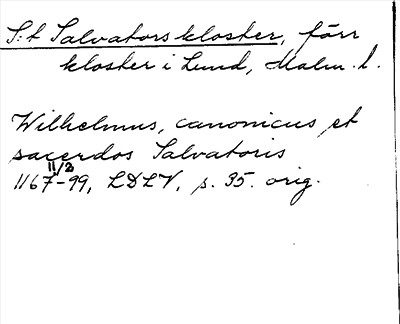 S:t Salvators kloster, förr
kloster i Lund, Malm. l.
Wilhelmus, canonicus et
sacerdos Salvatoris
11/2
1167-99, LDLV, s. 35. orig.